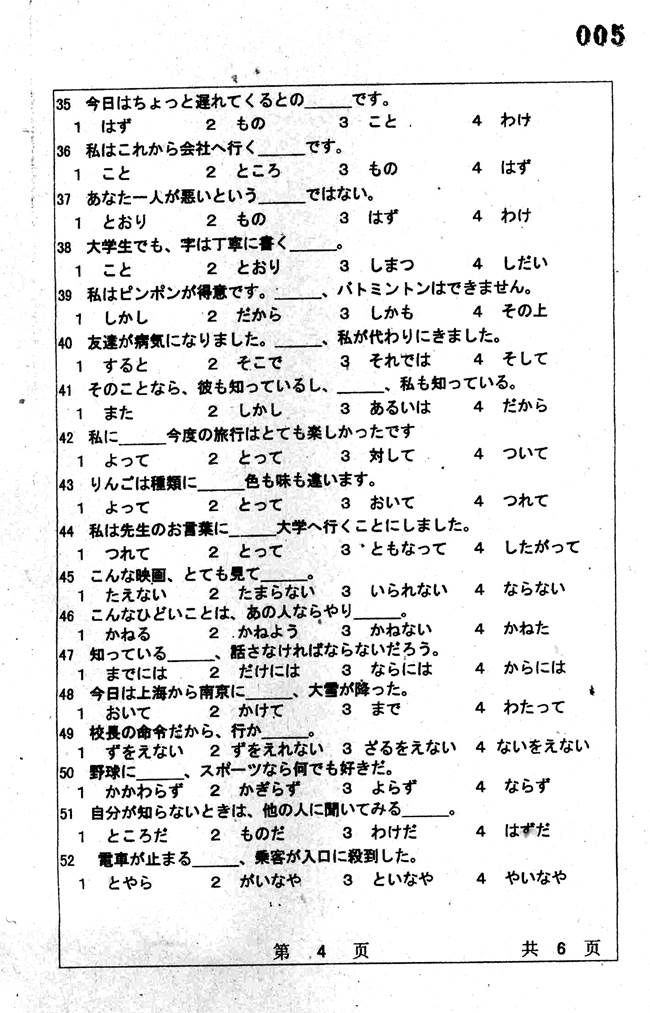 005
35 今日はちょっと遅れてくるとの_____です。
1 はず 2 もの 3 こと 4 わけ
36 私はこれから会社へ行く_____です。
1 こと 2 ところ 3 もの 4 はず
37 あなた一人が悪いという_____ではない。
1 とおり 2 もの 3 はず 4 わけ
38 大学生でも、字は丁寧に書く_____。
1 こと 2 とおり 3 しまつ 4 しだい
39 私はピンポンが得意です。_____、バトミントンはできません。
1 しかし 2 だから 3 しかも 4 その上
40 友達が病気になりました。_____、私が代わりにきました。
1 すると 2 そこで 3 それでは 4 そして
41 そのことなら、彼も知っているし、_____、私も知っている。
1 また 2 しかし 3 あるいは 4 だから
42 私に_____今度の旅行はとても楽しかったです
1 よって 2 とって 3 対して 4 ついて
43 りんごは種類に_____色も味も違います。
1 よって 2 とって 3 おいて 4 つれて
44 私は先生のお言葉に_____大学へ行くことにしました。
1 つれて 2 とって 3 ともなって 4 したがって
45 こんな映画、とても見て_____。
1 たえない 2 たまらない 3 いられない 4 ならない
46 こんなひどいことは、あの人ならやり_____。
1 かねる 2 かねよう 3 かねない 4 かねた
47 知っている_____、話さなければならないだろう。
1 までには 2 だけには 3 ならには 4 からには
48 今日は上海から南京に_____、大雪が降った。
1 おいて 2 かけて 3 まで 4 わたって
49 校長の命令だから、行か_____。
1 ずをえない 2 ずをえれない 3 ざるをえない 4 ないをえない
50 野球に_____、スポーツなら何でも好きだ。
1 かかわらず 2 かぎらず 3 よらず 4 ならず
51 自分が知らないときは、他の人に聞いてみる_____。
1 ところだ 2 ものだ 3 わけだ 4 はずだ
52 電車が止まる_____、乗客が入口に殺到した。
1 とやら 2 がいなや 3 といなや 4 やいなや
第 4 页 共 6 页